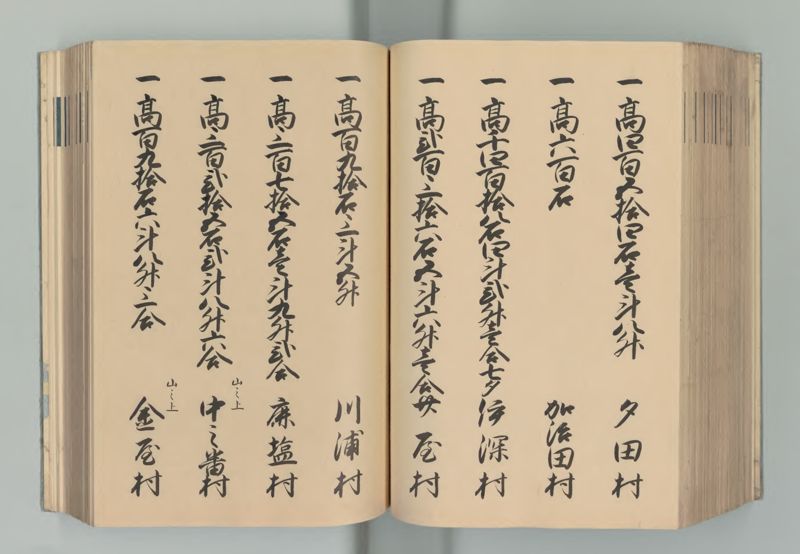 一高四百五拾四石壱斗八升 夕田村
一高六百石 加治田村
一高千四百拾八石四斗弐升壱合七夕 伊深村
一高弐百三拾六石五斗六升壱合 廿屋村
一高百九拾石三斗五升 川浦村
一高三百七拾五石壱斗九升弐合 廉塩村
一高三百弐拾五石弐斗八升六合 山之上 中之番村
一高百九拾石六斗八升三合 山之上 金屋村